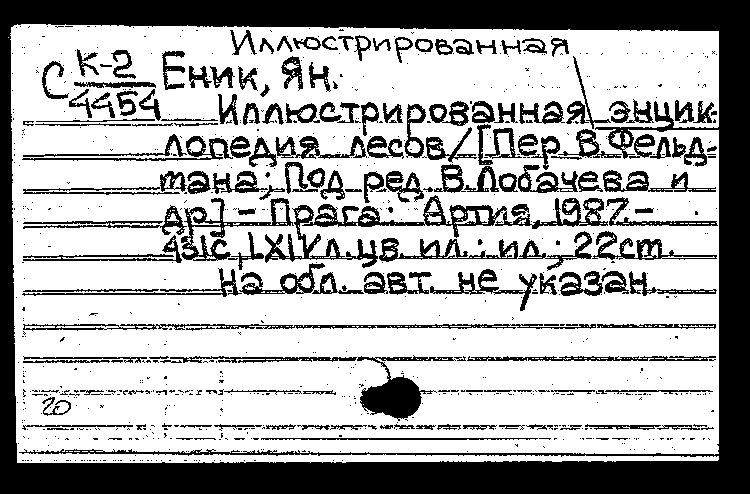 Иллюстрированная
С К-2
4454
Еник, Ян.
Иллюстрированная энцик-
лопедия лесов/[Пер. В.Фельд-
мана; Под ред. В.Лобачева и
др.] - Прага: Артия, 1987.-
431с., LXIVл.цв. ил.: ил.; 22см.
На обл. авт. не указан.
20